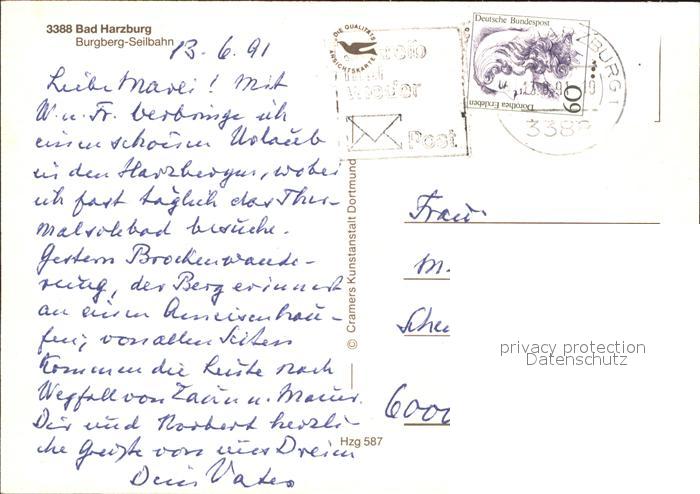 3388 Bad Harzburg
Burgberg-Seilbahn
13.6.91
Liebe Marei! Mit
W. u. Fr. verbringe ich
einen schönen Urlaub
in den Harzbergen, wobei
ich fast täglich das Ther-
malsolebad besuche.
Gestern Brockenwande-
rung, der Berg erinnert
an einen Ameisenhau-
fen, von allen Seiten
kommen die Leute nach
Wegfall von Zaun u. Mauer.
Dir und Norbert herzli-
che Grüße von uns Dreien
Dein Vater
© Cramers Kunstanstalt Dortmund
Hzg 587
DIE QUALITÄTS
ANSICHTSKARTE
mal
wieder
Post
Deutsche Bundespost
60
Dorothea Erxleben
HARZBURG 1
3388
Frau
M.
6000
privacy protection
Datenschutz